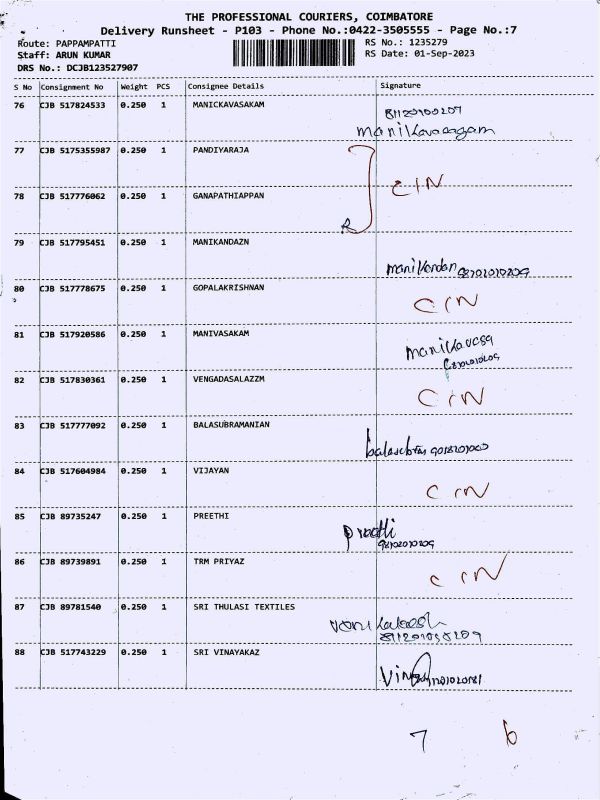 THE PROFESSIONAL COURIERS, COIMBATORE
Delivery Runsheet - P103 - Phone No.:0422-3505555 - Page No.:7
Route: PAPPAMPATTI RS No.: 1235279
Staff: ARUN KUMAR RS Date: 01-Sep-2023
DRS No.: DCJB123527907
S No Consignment No Weight PCS Consignee Details Signature
76 CJB 517824533 0.250 1 MANICKAVASAKAM
manikavasagam
77 CJB 5175355987 0.250 1 PANDIYARAJA
CIN
78 CJB 517776062 0.250 1 GANAPATHIAPPAN
R
79 CJB 517795451 0.250 1 MANIKANDAZN
manikandan
80 CJB 517778675 0.250 1 GOPALAKRISHNAN
CIN
81 CJB 517920586 0.250 1 MANIVASAKAM
manikavasa
82 CJB 517830361 0.250 1 VENGADASALAZZM
CIN
83 CJB 517777092 0.250 1 BALASUBRAMANIAN
84 CJB 517604984 0.250 1 VIJAYAN
CIN
85 CJB 89735247 0.250 1 PREETHI
86 CJB 89739891 0.250 1 TRM PRIYAZ
CIN
87 CJB 89781540 0.250 1 SRI THULASI TEXTILES
88 CJB 517743229 0.250 1 SRI VINAYAKAZ
7 6